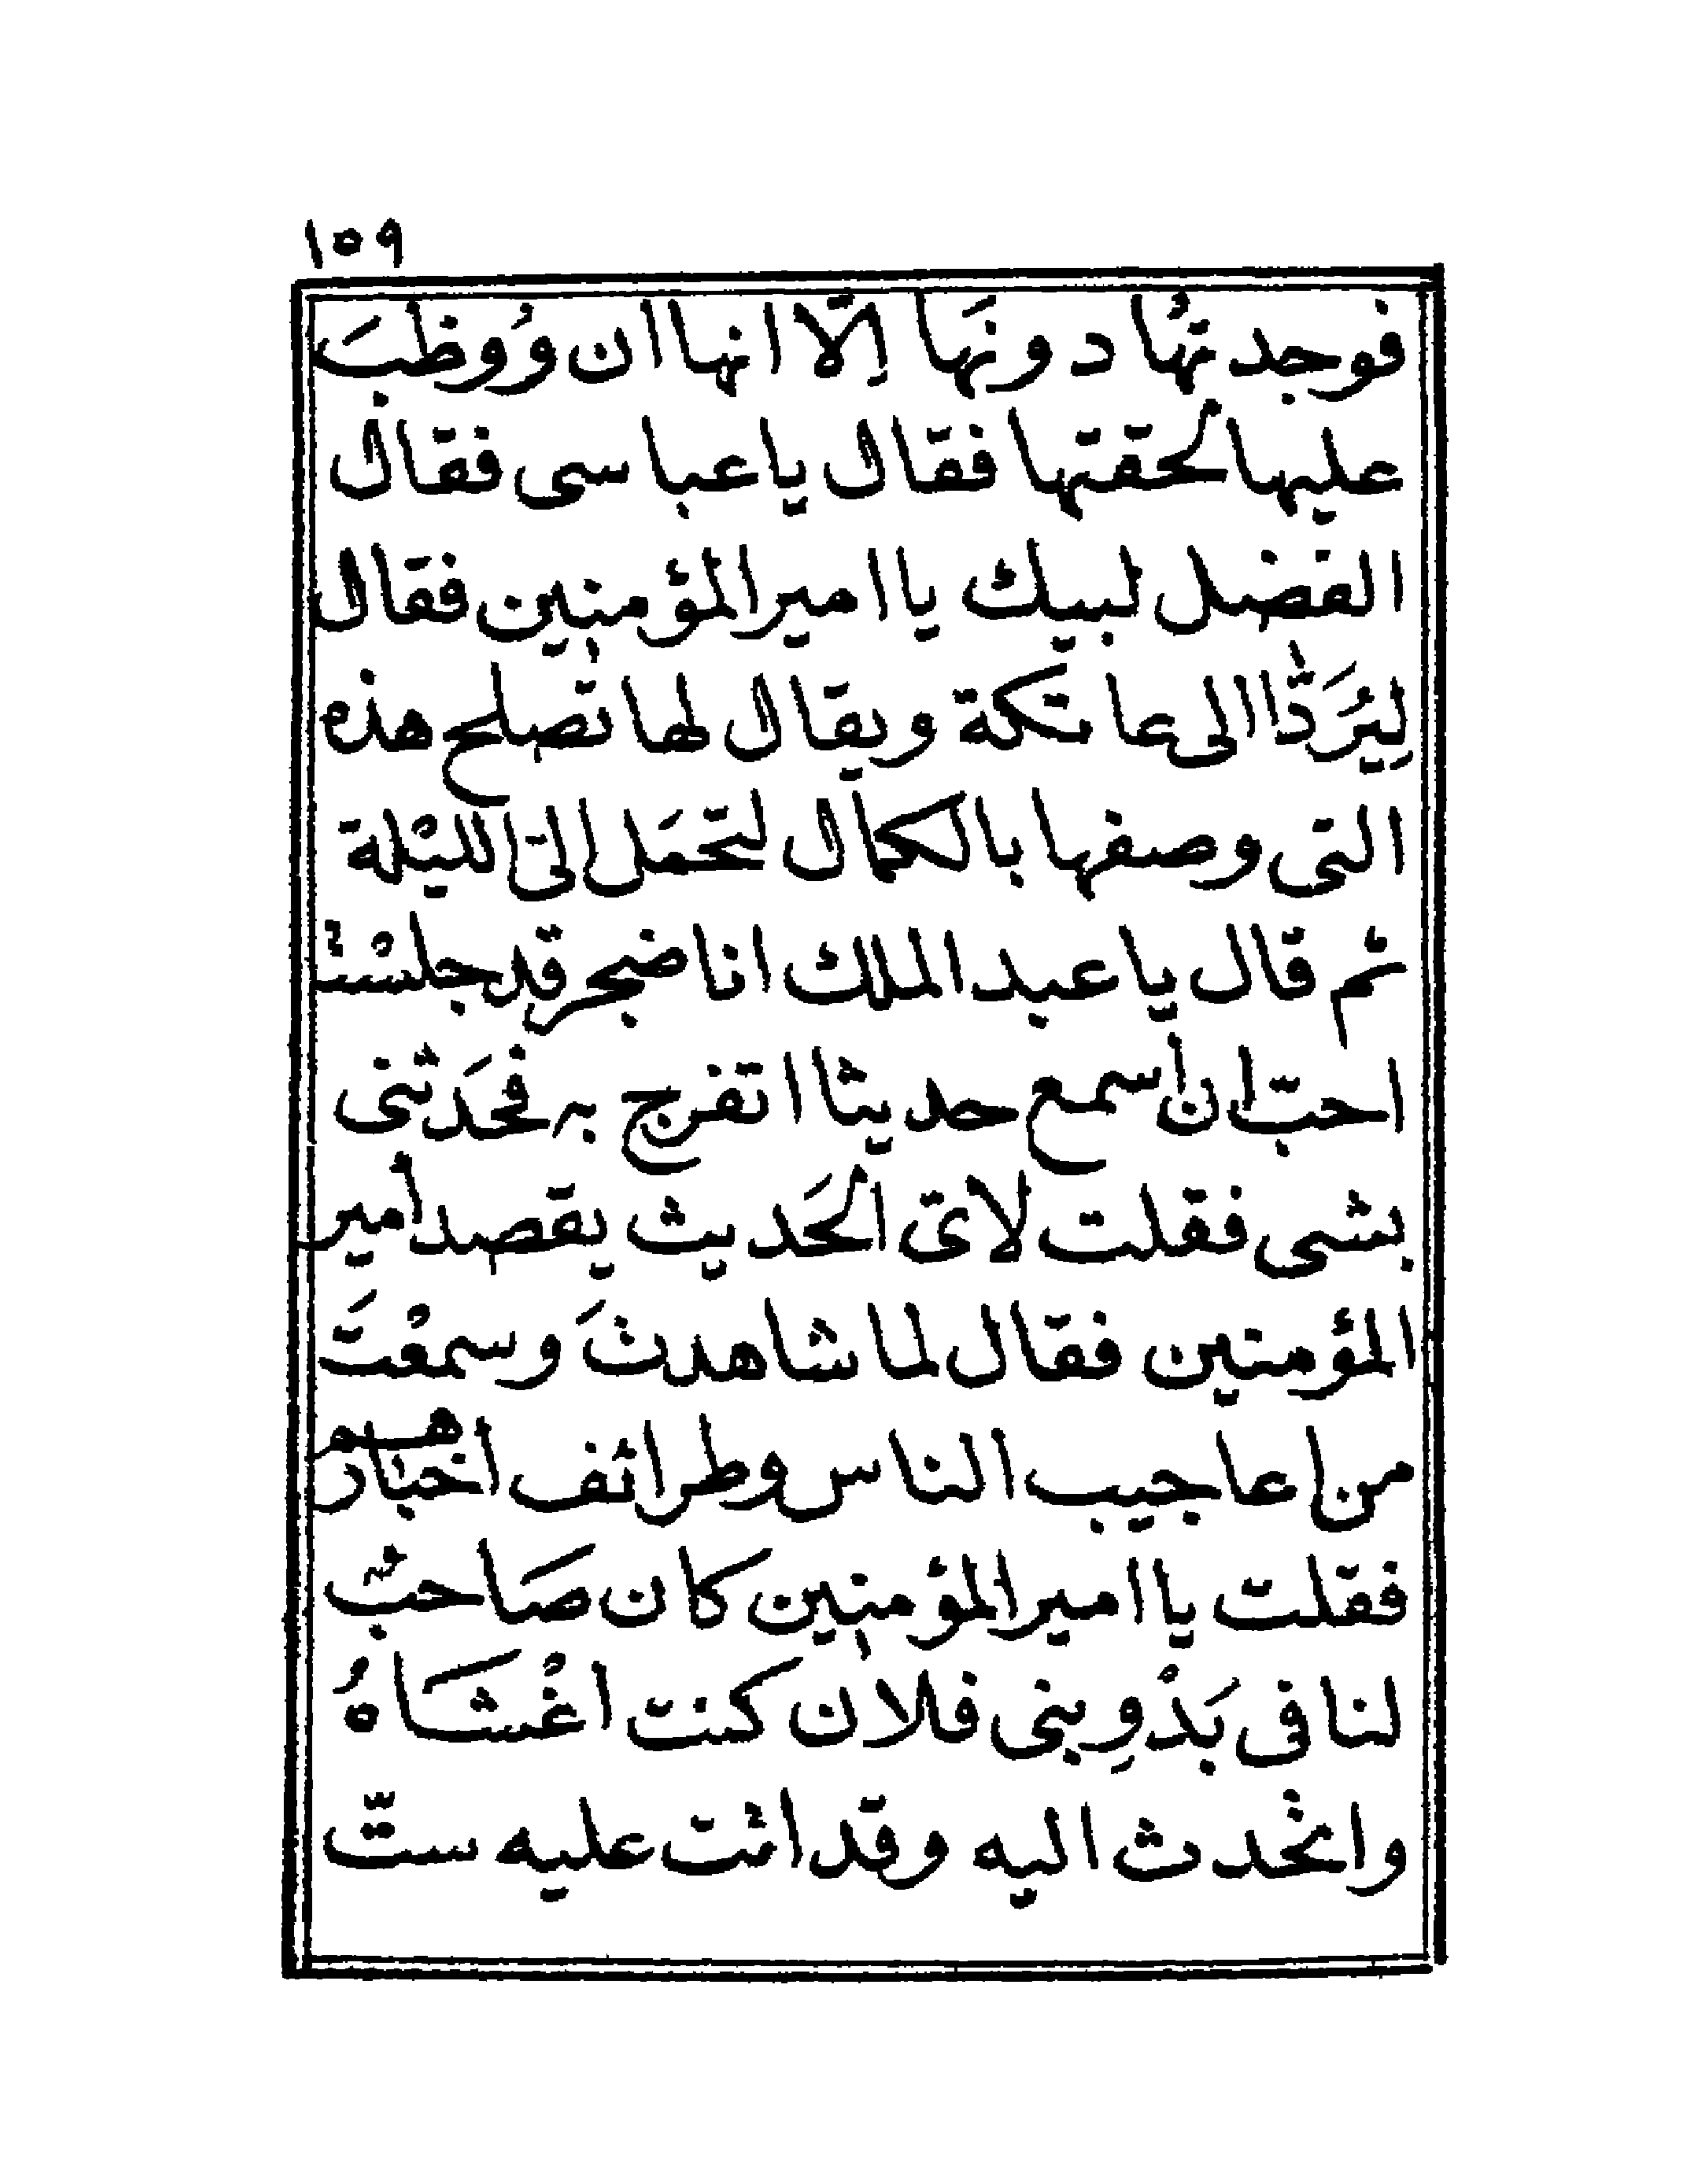 ١٥٩
فوجدتُها دونَها اِلّا انها ان وُوظبَ
عليها لحقتها فقال يا عباسى فقال
الفضل لبيك يا امير المؤمنين فقال
لِيُرَدّا الى عاتكة ويقال لها تصلح هذه
التى وصفها بالكمال لتحمَل الىّ الليْلة
ثم قال يا عبد الملك انا ضجر قد جلسْت
احبّ ان أسمع حديثا اتفرج به فحَدثنى
بشى فقلت لاىّ الحَديث يقصد أمير
المؤمنين فقال لما شاهدتَ وسمعْتَ
من اعاجيب الناس وطرائف اخبارهم
فقلت يا امير المؤمنين كان صَاحبٌ
لنا فى بَدْوِ بنى فلان كنت اغْشَاهُ
واتحدث اليه وقد اتت عليه ستّ